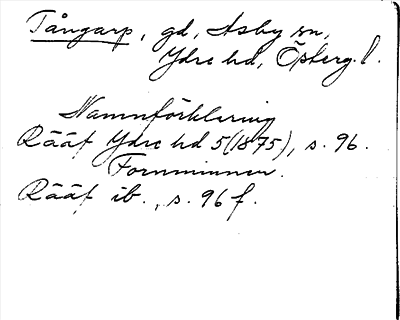 Tångarp, gd, Asby sn,
Ydre hd, Österg. l.
Namnförklaring
Rääf Ydre hd 5(1875), s. 96.
Fornminnen.
Rääf ib., s. 96 f.